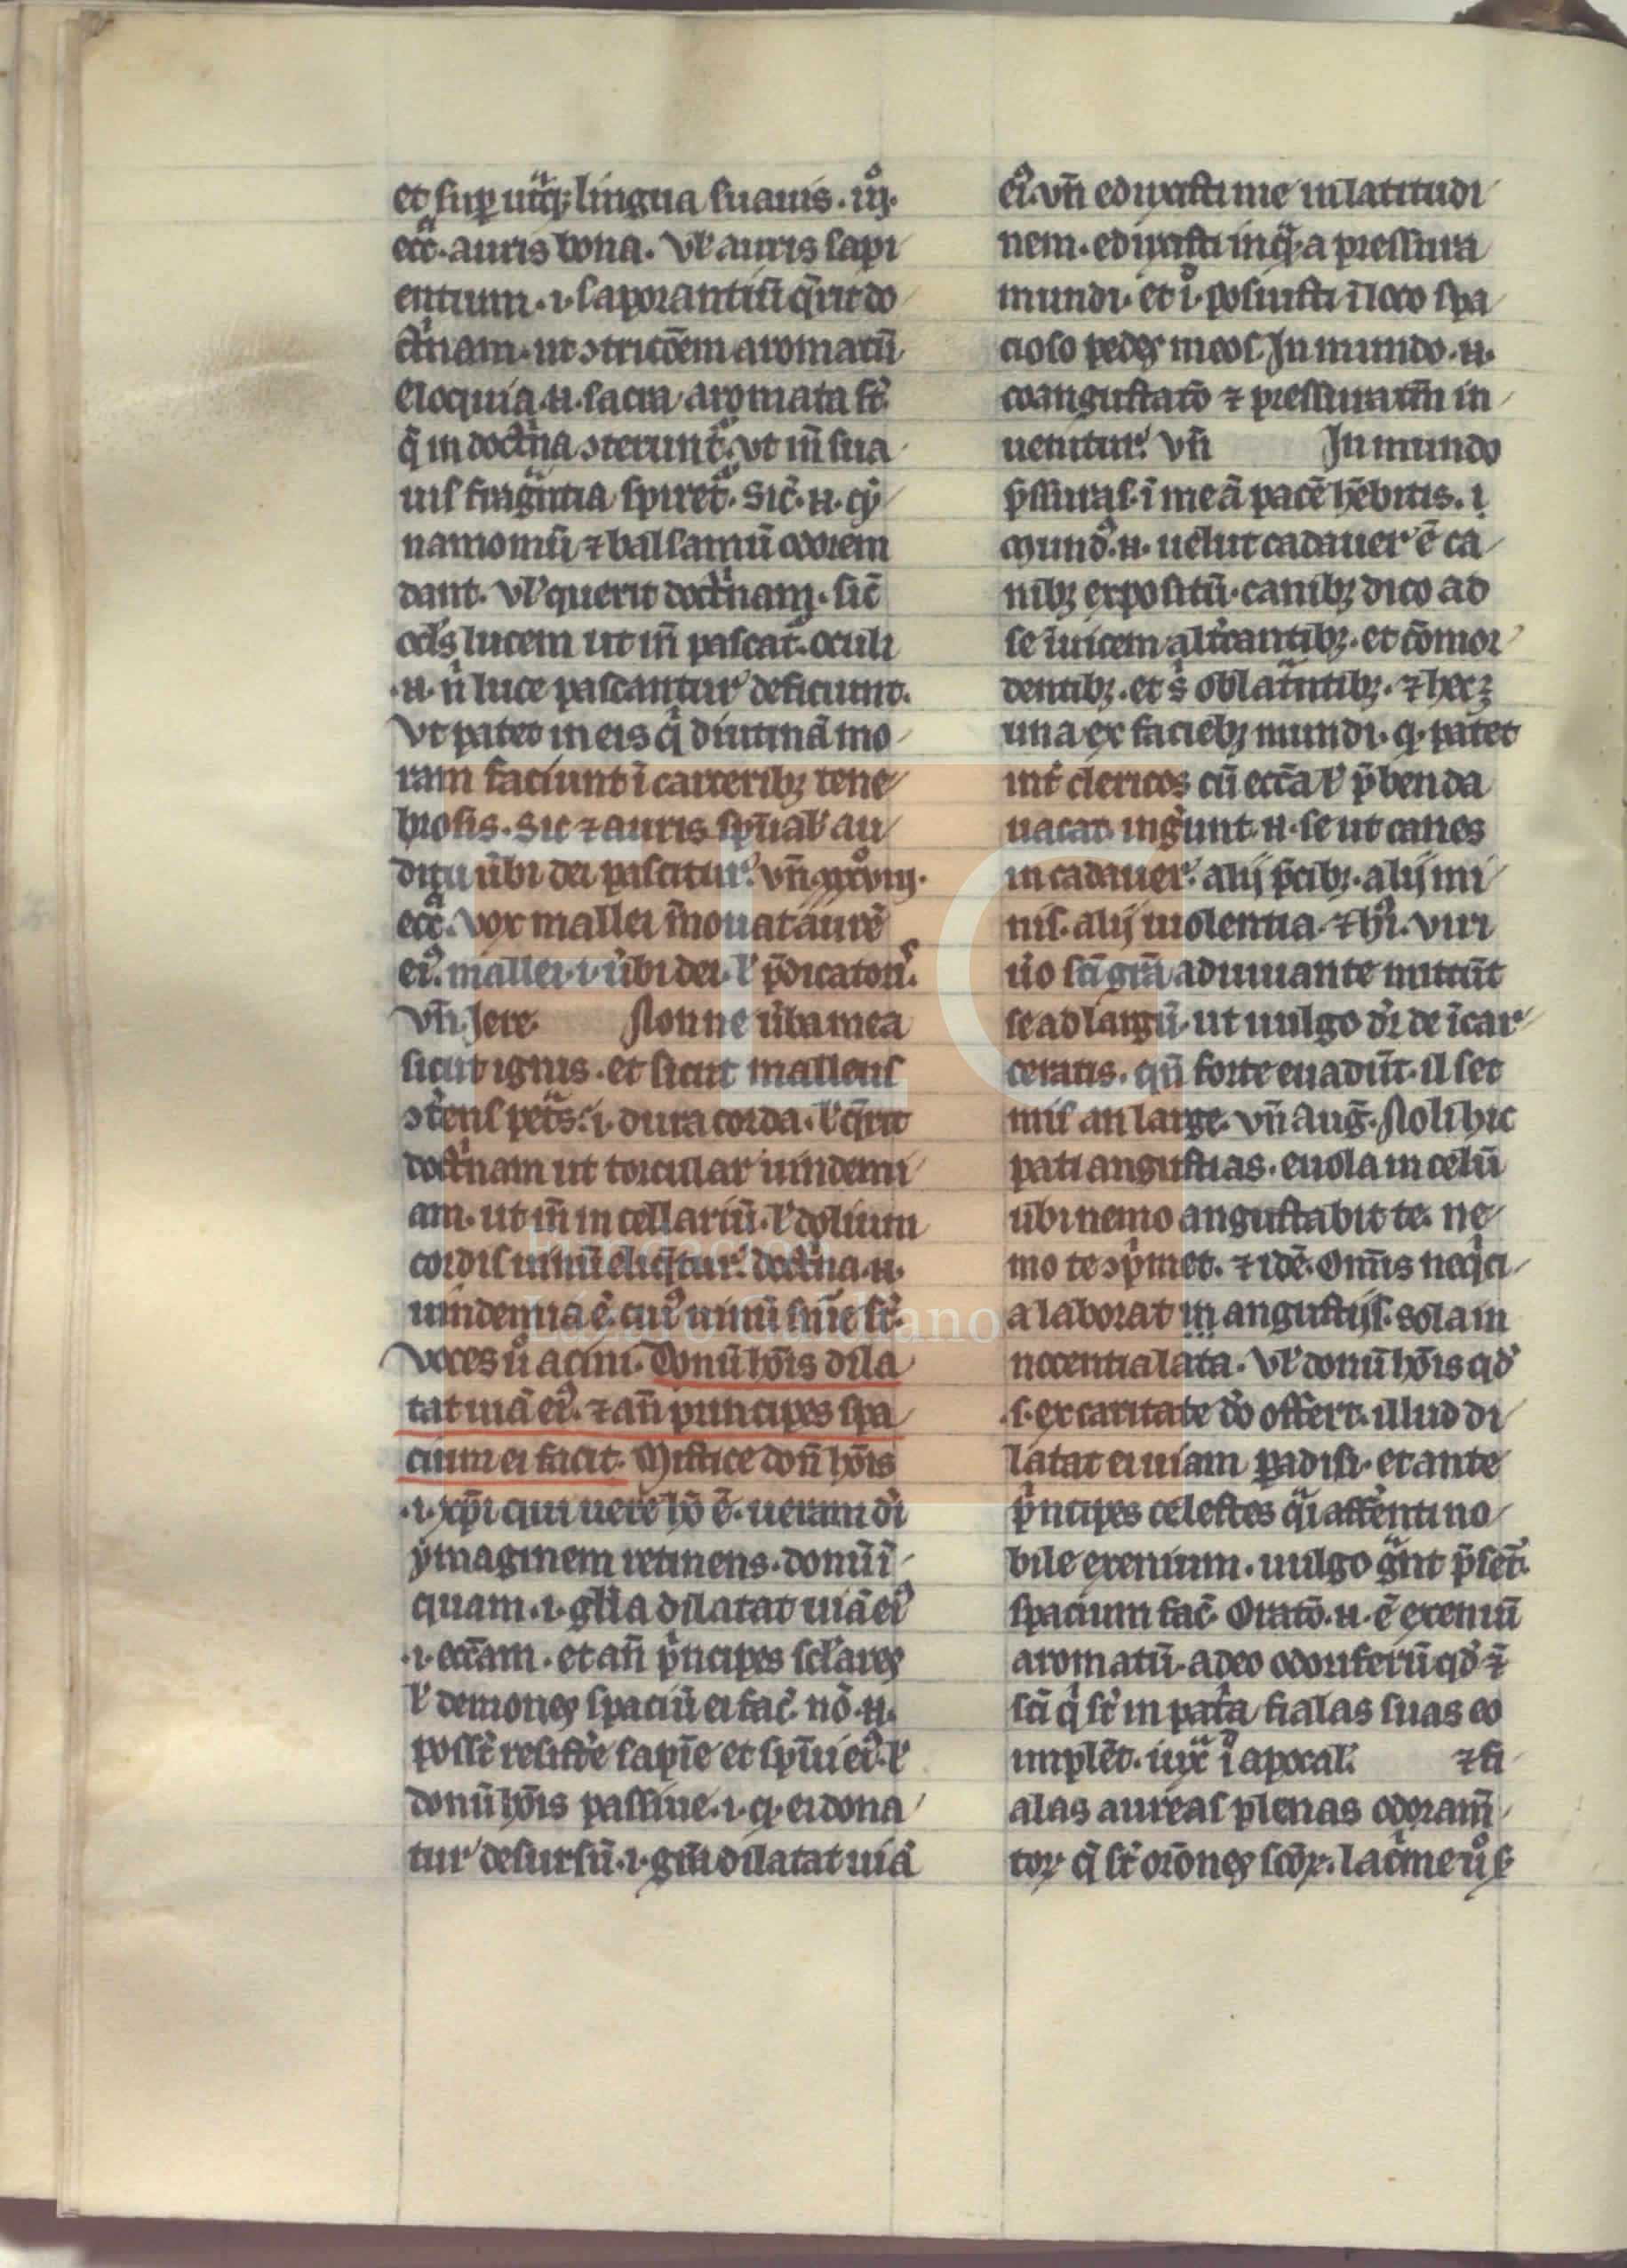 et suꝑ utͣq; lingua suauis. iijͦ.
eccͣ. auris bona. Vl' auris sapi
entum .i. saporantiũ q̃rit do
ctͥnam. ut ↄtricõem aromatũ
eloquia .n. sacra aromata sт̃
q̃ in doctͥna ↄterunt᷑. Vt in̄ sua
uis fragͣntia spiret᷑. Sic̃ .n. cy
namomũ ⁊ balsamũ odorem
dant. Vl' querit doctͥnam. sic̃
oc̃ls lucem ut in̄ pascat᷑. oculi
.n. ñ luce pascantur deficiunt.
Vt patet in eis qͥ diutinã mo
ram faciunt ĩ carceribꝫ tene
brosis. Sic ⁊ auris spũal' au
ditu ũbi dei pascitur. Vñ xxxviijͦ.
eccͣ. Vox mallei ĩnouat aurẽ
eiꝰ. mallei .i. ũbi dei. l' p̃dicatoris.
Vñ Jere. Nonne ũba mea
sicut ignis. et sicut malleus
ↄterens petͣs. i. dura corda. l' q̃rit
doctͥnam ut torcular uindemi
am. ut in̄ in cellariũ. l' dolium
cordis uinũ eliq̃tur. doctͥna .n.
uindemia ẽ. cuiꝰ uinũ sñie sт̃.
Voces ũͦ acini. Donũ hõis dila
tat uiã eiꝰ. ⁊ an̄ principes spa
cium ei facit. Mistice donũ hõis
.i. xp̃i qui uere hõ ẽ. ueram dei
ymaginem retinens. donũ ĩ
quam .i. gr̃a dilatat uiã eiꝰ
.i. eccãm. et an̄ pͥncipes sc̃lares
l' demones spaciũ ei fac̃. nõ .n.
possт̃ resistẽ sapĩe et spũi eiꝰ. l'
donũ hõis passiue .i. q. ei dona
tur desursũ .i. gr̃a dilatat uiã
eiꝰ. Vñ eduxisti me in latitudi
nem. eduxisti inqͣ a pressura
mundi. et iͦ. posuisti ĩ loco spa
cioso pedes meos. In mundo .n.
coangustatõ ⁊ pressura tm̃ in
uenitur. Vñ In mundo
p̃ssuras. ĩ me ã pacẽ hẽbitis. i
mundꝰ .n. uelut cadauer ẽ ca
nibꝫ expositũ. canibꝫ dico ad
se ĩuicem altercantibꝫ. et cõmor
dentibꝫ. et s̃ oblatͣntibꝫ. ⁊ hec ẽ
una ex faciebꝫ mundi. q. patet
int᷑ clericos cũ ecc̃a l' p̃benda
uacat. ingͥunt .n. se ut canes
in cadauer. alij p̃cibꝫ. alij mi
nis. alij uiolentia. ⁊ hꝰi. Viri
ũo sc̃i gr̃a adiuuante mittũt
se ad largũ. ut uulgo dr̃ de ĩcar
ceratis. qũ forte euadũt. il set
mis an large. Vñ Aug̃. Noli hic
pati angustias. euola in celũ
ubi nemo angustabit te. ne
mo te ↄpͥmet. ⁊ idẽ. Om̃is neq̃ci
a laborat in angustijs. sola in
nocentia lata. Vl' donũ hõis qd'
.s. ex caritate dõ offert. illud di
latat ei uiam padisi. et ante
pͥncipes celestes qͥ affẽnti no
bile exenium. uulgo gͣnt p̃sẽt.
spacium fac̃. Oratõ .n. ẽ exeniũ
aromatũ. adeo odoriferũ qd' ⁊
sc̃i qͥ sт̃ in patͥa fialas suas eo
implẽt. iuxͣ i apocal'. ⁊ fi
alas aureas plenas odoram̃
toꝝ q̃ sт̃ orõnes sc̃oꝝ. lacͥme ũͦ s̃